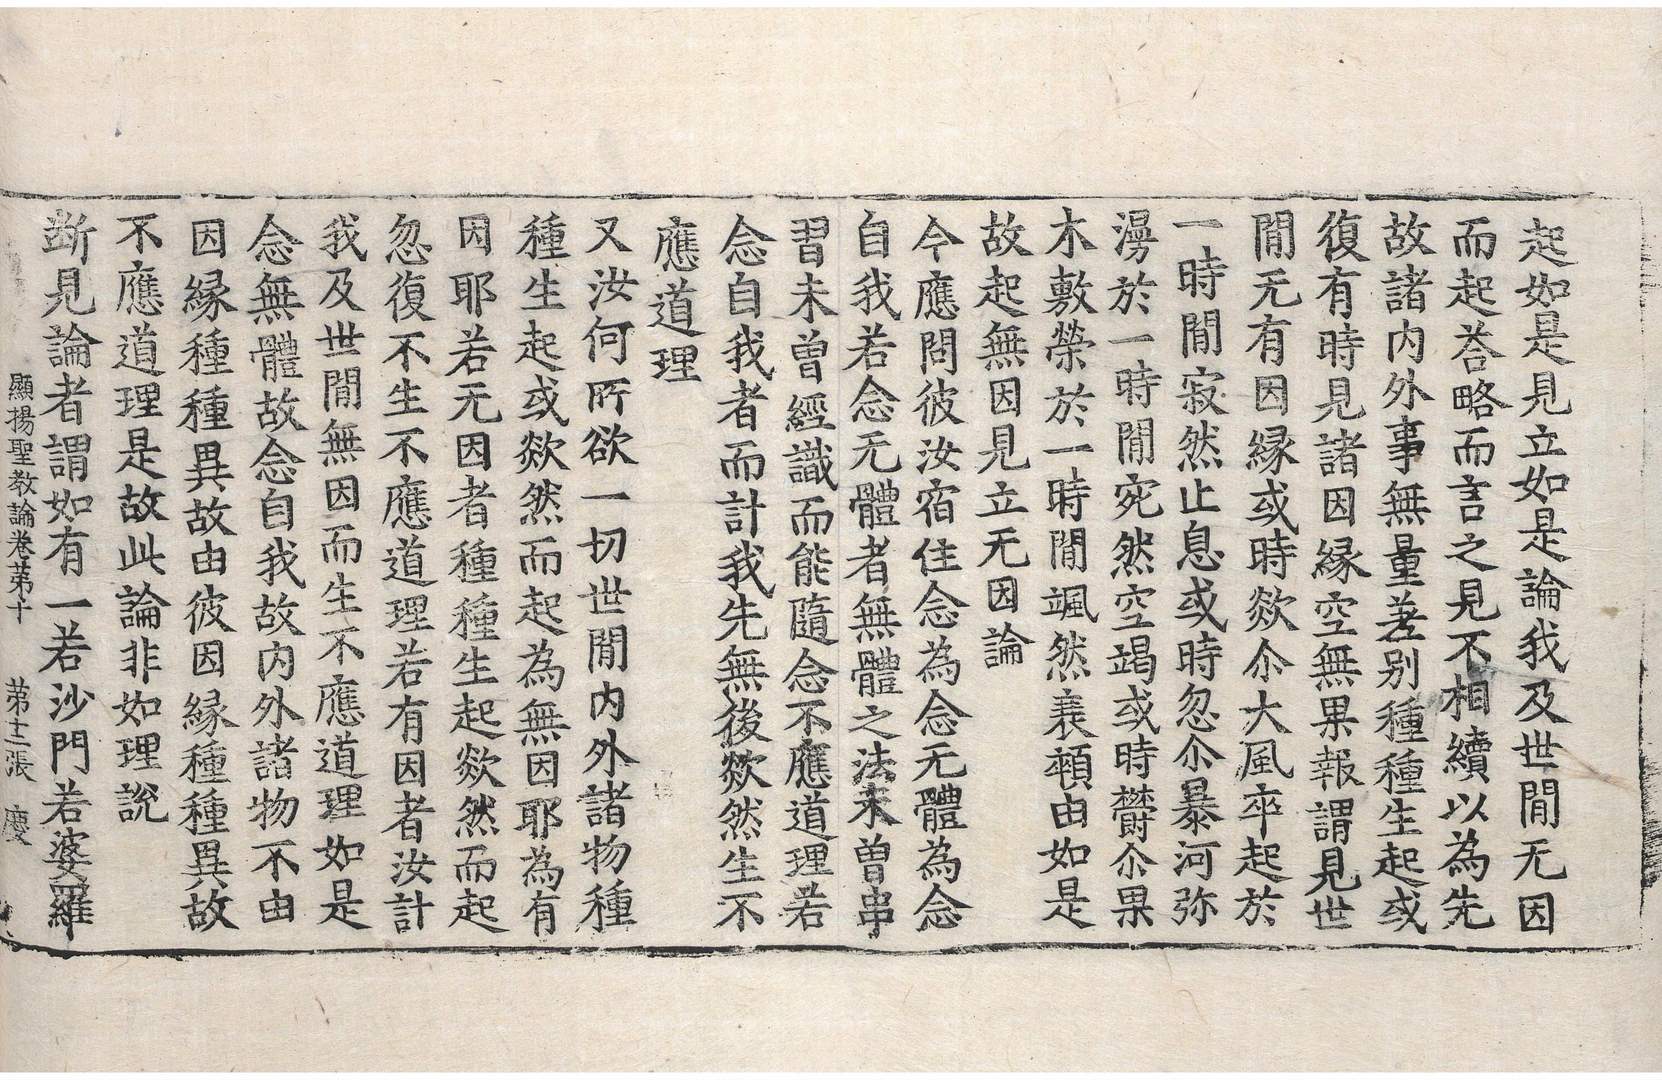 起如是見立如是論我及世閒无因
而起荅略而言之見不相續以為先
故諸內外事無量差別種種生起或
復有時見諸因緣空無果報謂見世
閒无有因緣或時欻尒大風卒起於
一時閒寂然止息或時忽尒暴河弥
漫於一時閒宛然空竭或時欝尒果
木敷榮於一時閒颯然衰顇由如是
故起無因見立无因論
今應問彼汝宿住念為念无體為念
自我若念无體者無體之法未曾串
習未曾經識而能隨念不應道理若
念自我者而計我先無後欻然生不
應道理
又汝何所欲一切世閒內外諸物種
種生起或欻然而起為無因耶為有
因耶若无因者種種生起欻然而起
忽復不生不應道理若有因者汝計
我及世閒無因而生不應道理如是
念無體故念自我故內外諸物不由
因緣種種異故由彼因緣種種異故
不應道理是故此論非如理說
斷見論者謂如有一若沙門若婆羅
顯揚聖教論卷苐十 苐十二張 慶